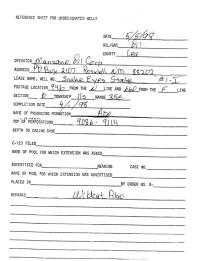 REFERENCE SHEET FOR UNDESIGNATED WELLS
DATE 5/5/98
OIL/GAS Oil
COUNTY Lea
OPERATOR Manzano Oil Corp
ADDRESS PO Box 2107 Roswell NM 88202
LEASE NAME, WELL NO. Snake Eyes State #1-I
FOOTAGE LOCATION FROM THE N LINE AND FROM THE E LINE
SECTION TOWNSHIP 11s RANGE 35e
COMPLETION DATE 4/1/98
NAME OF PRODUCING FORMATION Abo
TOP OF PERFORATIONS 9086 - 9114
DEPTH TO CASING SHOE
C-123 FILED
NAME OF POOL FOR WHICH EXTENSION WAS ASKED
ADVERTISED FOR HEARING CASE NO.
NAME OF POOL FOR WHICH EXTENSION WAS ADVERTISED
PLACED IN BY ORDER NO. R-
REMARKS Wildcat Abo